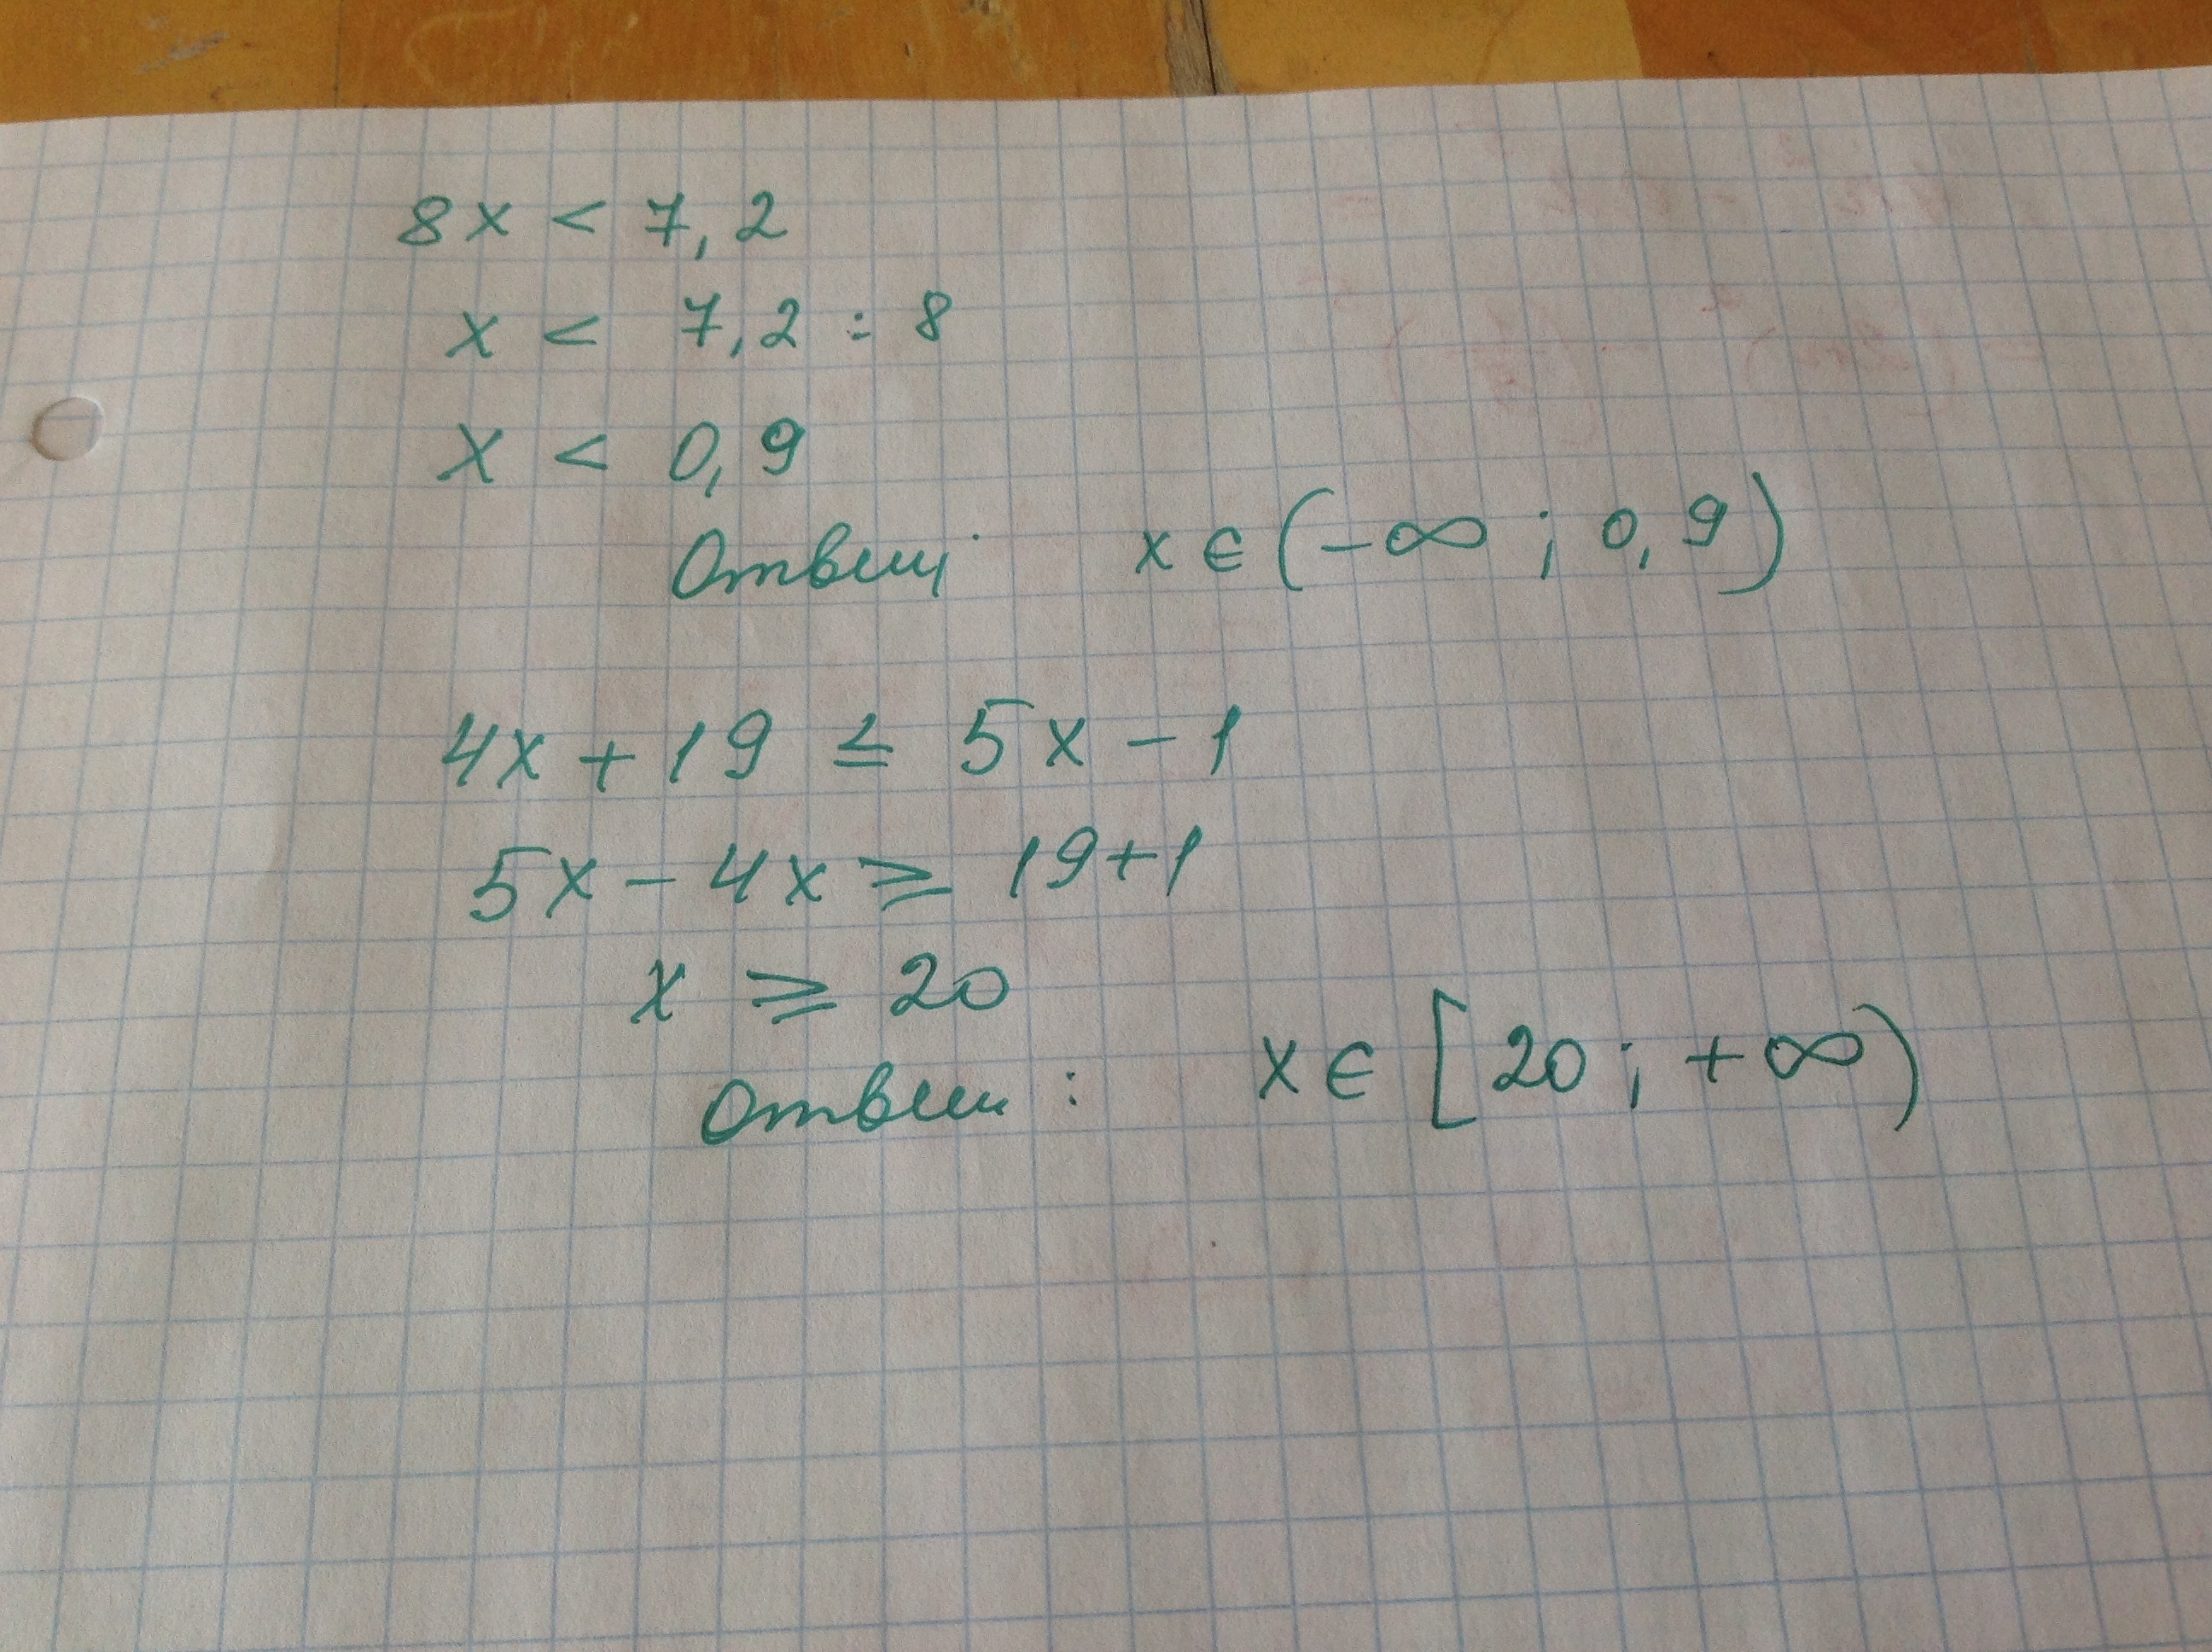 8x < 7,2
x < 7,2 : 8
x < 0,9
Ответ: x ∈ (-∞ ; 0,9)
4x + 19 ≤ 5x - 1
5x - 4x ≥ 19+1
x ≥ 20
Ответ: x ∈ [20 ; +∞)